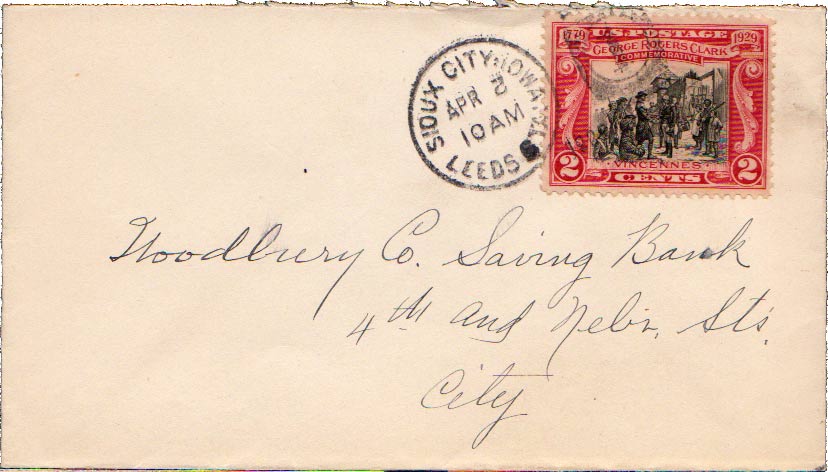 SIOUX CITY, IOWA
APR
10 AM
LEEDS
1779 U.S. POSTAGE 1929
GEORGE ROGERS CLARK
COMMEMORATIVE
VINCENNES
2 CENTS 2
Woodbury Co. Saving Bank
4th and Nebr. Sts.
City